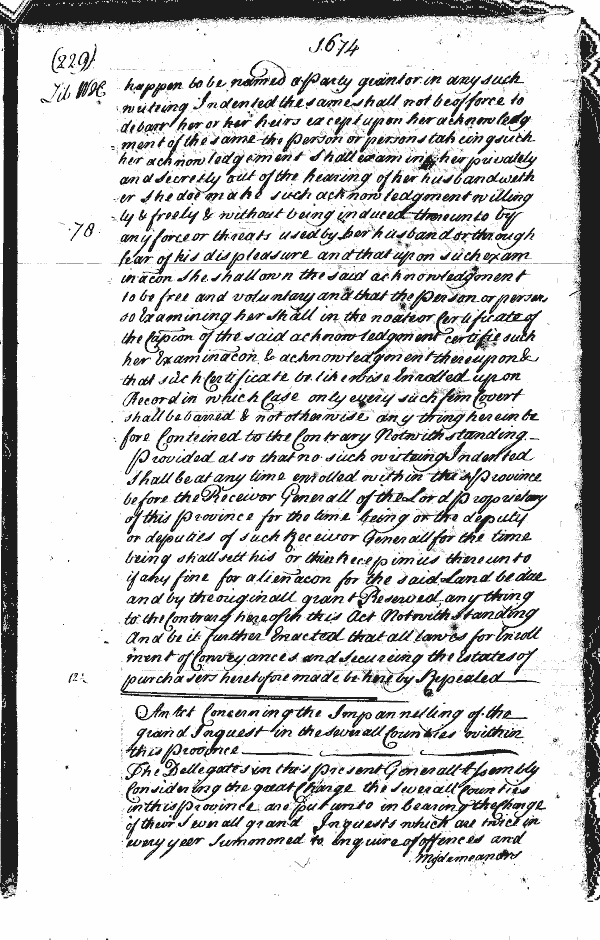 1674
(229)
Lib WHC
happen to be named a Party grantor in any such
writing Indented the same shall not be of force to
debarr her or her heirs except upon her acknowledg
ment of the same the Person or persons taking such
her acknowledgement shall examine her privately
and secretly out of the hearing of her husband wheth
er she doe make such acknowledgment willing
ly & freely & without being induced thereunto by
78
any force or threats used by her husband or through
fear of his displeasure and that upon such exam
inacon she shall own the said acknowledgment
to be free and voluntary and that the Person or persons
so Examining her shall in the noate or Certificate of
the Capcon of the said acknowledgment certifie such
her Examinacon & acknowledgment thereupon &
that such Certificate be likewise Enrolled upon
Record in which Case only every such fem Covert
shall be barred & not otherwise any thing hereinbe
fore Conteined to the Contrary Notwithstanding
Provided also that no such writeing Indented
shall be at any time enrolled within this Province
before the Receivor Generall of the Lord Proprietary
of this Province for the time being or the deputy
or deputies of such Receivor Generall for the time
being shall sett his or their Recepimus thereunto
if any fine for alienacon for the said Land be due
and by the originall grant Reserved any thing
to the Contrary hereof in this Act Notwithstanding
And be it further Enacted that all lawes for Enroll
ment of Conveyances and secureing the Estates of
purchasers heretofore made be hereby Repealed
An Act Concerning the Impannelling of the
grand Inquest in the severall Counties within
this Province
The Dellegates in this present Generall Assembly
Considering the great Charge the severall Counties
in this Province are put unto in bearing the Charge
of their severall grand Inquests which are twice in
every yeer summoned to enquire of offences and
Misdemeanors